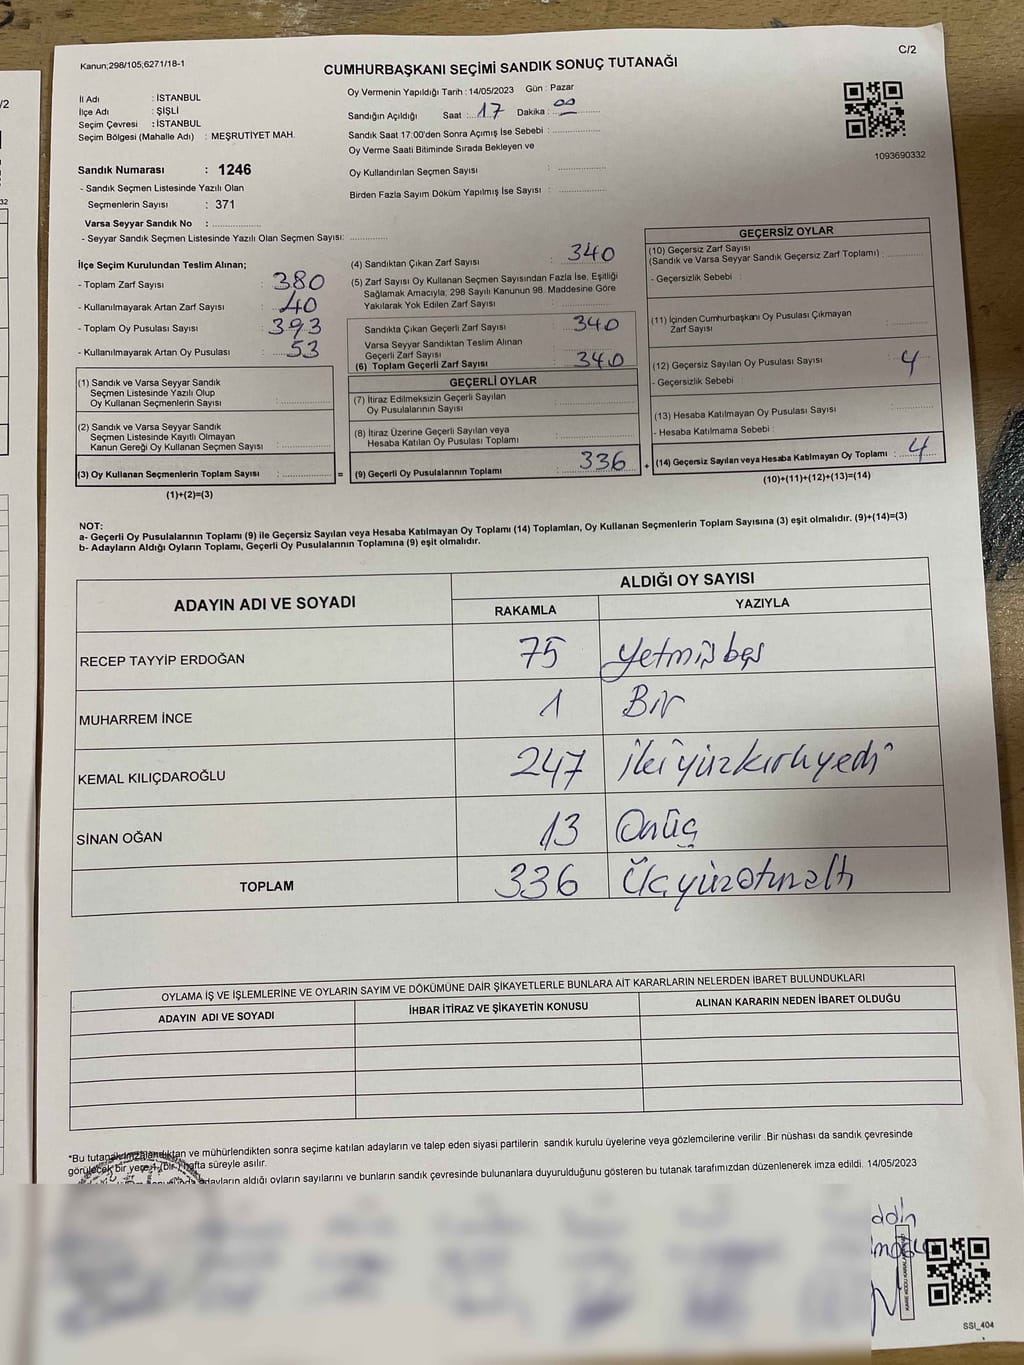 Kanun;298/105;6271/18-1
C/2
CUMHURBAŞKANI SEÇİMİ SANDIK SONUÇ TUTANAĞI
İl Adı : İSTANBUL
İlçe Adı : ŞİŞLİ
Seçim Çevresi : İSTANBUL
Seçim Bölgesi (Mahalle Adı) : MEŞRUTİYET MAH.
Sandık Numarası : 1246
- Sandık Seçmen Listesinde Yazılı Olan
Seçmenlerin Sayısı : 371
Varsa Seyyar Sandık No :
- Seyyar Sandık Seçmen Listesinde Yazılı Olan Seçmen Sayısı:
Oy Vermenin Yapıldığı Tarih : 14/05/2023 Gün : Pazar
Sandığın Açıldığı Saat : 17 Dakika : 00
Sandık Saat 17:00'den Sonra Açımış İse Sebebi :
Oy Verme Saati Bitiminde Sırada Bekleyen ve
Oy Kullandırılan Seçmen Sayısı :
Birden Fazla Sayım Döküm Yapılmış İse Sayısı :
1093690332
İlçe Seçim Kurulundan Teslim Alınan;
- Toplam Zarf Sayısı : 380
- Kullanılmayarak Artan Zarf Sayısı : 40
- Toplam Oy Pusulası Sayısı : 393
- Kullanılmayarak Artan Oy Pusulası : 53
(1) Sandık ve Varsa Seyyar Sandık
Seçmen Listesinde Yazılı Olup
Oy Kullanan Seçmenlerin Sayısı :
(2) Sandık ve Varsa Seyyar Sandık
Seçmen Listesinde Kayıtlı Olmayan
Kanun Gereği Oy Kullanan Seçmen Sayısı :
(3) Oy Kullanan Seçmenlerin Toplam Sayısı :
=
(1)+(2)=(3)
(4) Sandıktan Çıkan Zarf Sayısı : 340
(5) Zarf Sayısı Oy Kullanan Seçmen Sayısından Fazla İse, Eşitliği
Sağlamak Amacıyla, 298 Sayılı Kanunun 98. Maddesine Göre
Yakılarak Yok Edilen Zarf Sayısı :
Sandıkta Çıkan Geçerli Zarf Sayısı : 340
Varsa Seyyar Sandıktan Teslim Alınan
Geçerli Zarf Sayısı :
(6) Toplam Geçerli Zarf Sayısı : 340
GEÇERLİ OYLAR
(7) İtiraz Edilmeksizin Geçerli Sayılan
Oy Pusulalarının Sayısı :
(8) İtiraz Üzerine Geçerli Sayılan veya
Hesaba Katılan Oy Pusulası Toplamı :
(9) Geçerli Oy Pusulalarının Toplamı : 336
+
GEÇERSİZ OYLAR
(10) Geçersiz Zarf Sayısı
(Sandık ve Varsa Seyyar Sandık Geçersiz Zarf Toplamı) :
- Geçersizlik Sebebi :
(11) İçinden Cumhurbaşkanı Oy Pusulası Çıkmayan
Zarf Sayısı :
(12) Geçersiz Sayılan Oy Pusulası Sayısı : 4
- Geçersizlik Sebebi :
(13) Hesaba Katılmayan Oy Pusulası Sayısı :
- Hesaba Katılmama Sebebi :
(14) Geçersiz Sayılan veya Hesaba Katılmayan Oy Toplamı : 4
(10)+(11)+(12)+(13)=(14)
NOT:
a- Geçerli Oy Pusulalarının Toplamı (9) ile Geçersiz Sayılan veya Hesaba Katılmayan Oy Toplamı (14) Toplamları, Oy Kullanan Seçmenlerin Toplam Sayısına (3) eşit olmalıdır. (9)+(14)=(3)
b- Adayların Aldığı Oyların Toplamı, Geçerli Oy Pusulalarının Toplamına (9) eşit olmalıdır.
ADAYIN ADI VE SOYADI
ALDIĞI OY SAYISI
RAKAMLA YAZIYLA
RECEP TAYYİP ERDOĞAN 75 Yetmişbeş
MUHARREM İNCE 1 Bir
KEMAL KILIÇDAROĞLU 247 ikiyüzkırkyedi
SİNAN OĞAN 13 Onüç
TOPLAM 336 Üçyüzotuzaltı
OYLAMA İŞ VE İŞLEMLERİNE VE OYLARIN SAYIM VE DÖKÜMÜNE DAİR ŞİKAYETLERLE BUNLARA AİT KARARLARIN NELERDEN İBARET BULUNDUKLARI
ADAYIN ADI VE SOYADI İHBAR İTİRAZ VE ŞİKAYETİN KONUSU ALINAN KARARIN NEDEN İBARET OLDUĞU
*Bu tutanak imzalandıktan ve mühürlendikten sonra seçime katılan adayların ve talep eden siyasi partilerin sandık kurulu üyelerine veya gözlemcilerine verilir .Bir nüshası da sandık çevresinde
görülecek bir yere 1 (bir) hafta süreyle asılır.
adayların aldığı oyların sayılarını ve bunların sandık çevresinde bulunanlara duyurulduğunu gösteren bu tutanak tarafımızdan düzenlenerek imza edildi. 14/05/2023
ddin
SSI_404